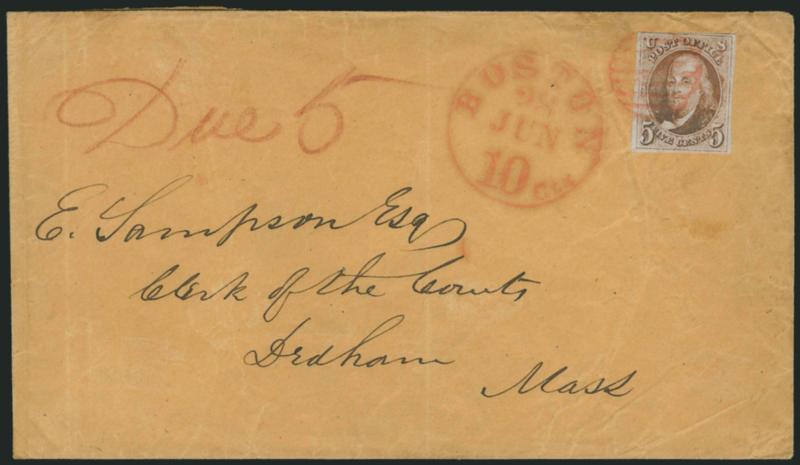 Due 5
BOSTON
28
JUN
10 cts
U S
POST OFFICE
5 FIVE CENTS 5
E. Sampson Esq
Clerk of the Courts
Dedham
Mass